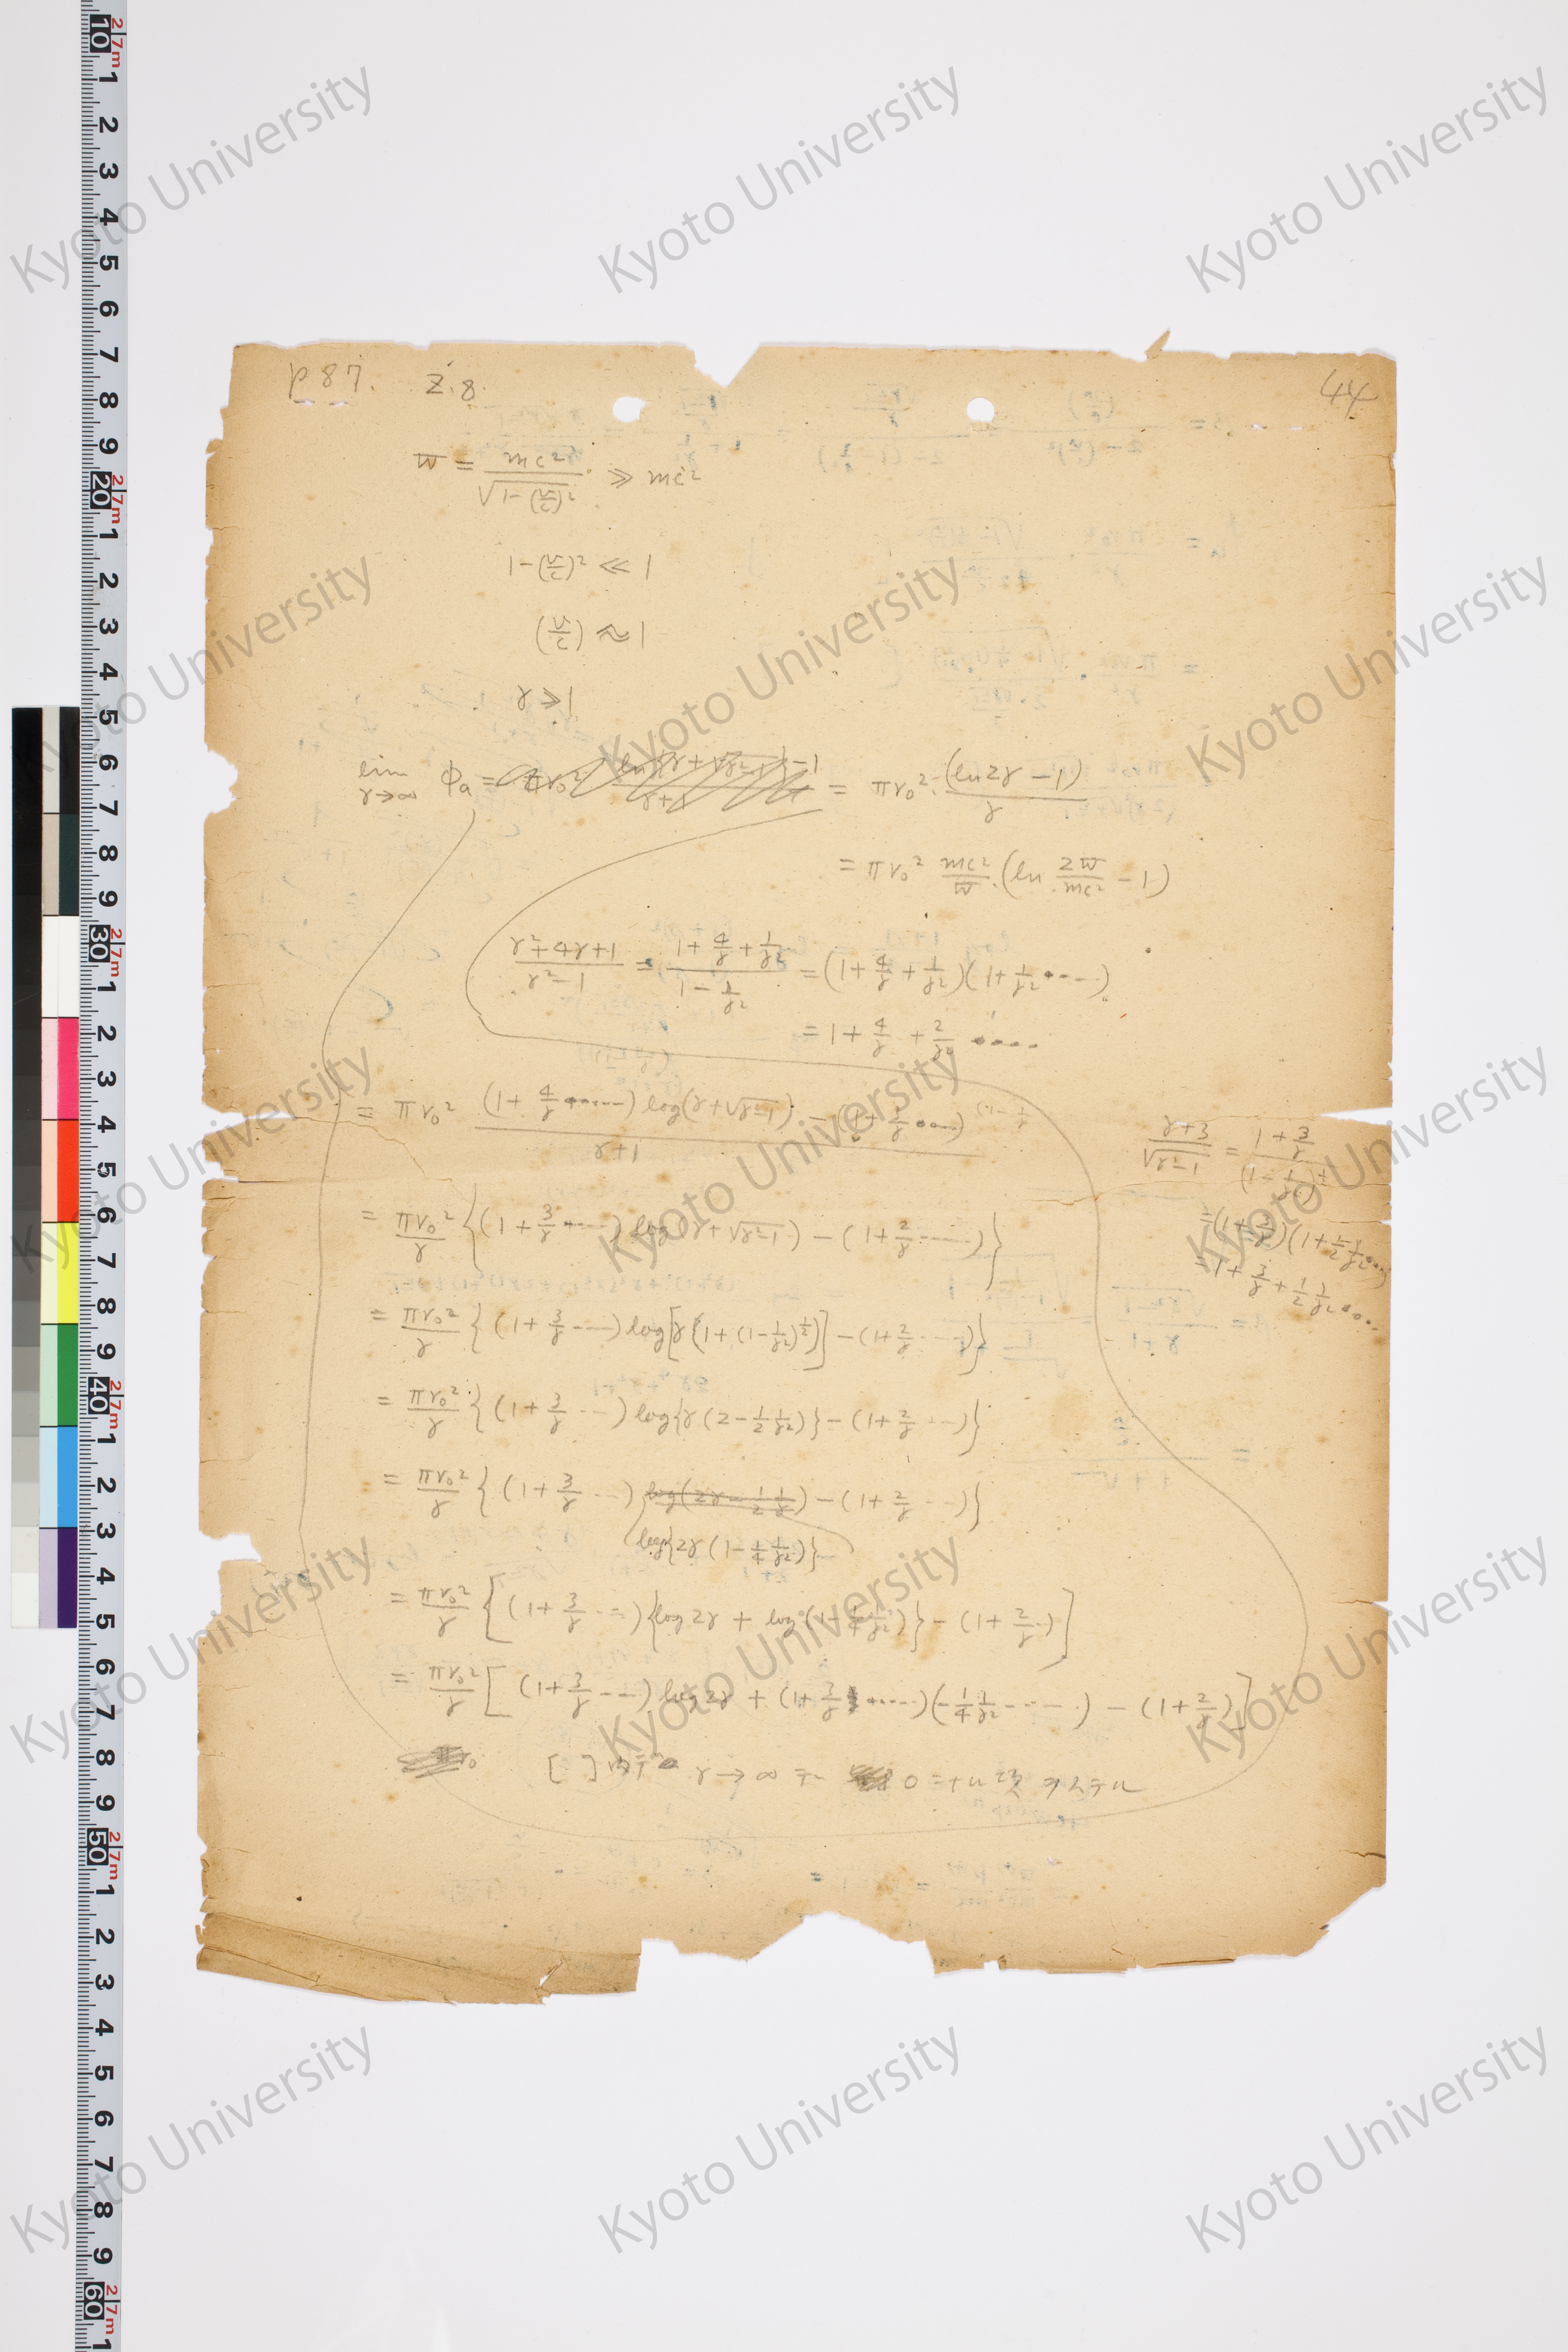 p 87. Z. 8.
44
W = mc² / √(1-(v/c)²) ≫ mc²
1-(v/c)² ≪ 1
(v/c) ≈ 1
γ ≫ 1
lim γ→∞ Φa = πr₀² (ln{γ+√(γ²-1)}-1) / (γ+1) = πr₀² · (ln2γ - 1) / γ
= πr₀² mc²/W · (ln 2W/mc² - 1)
(γ²+4γ+1)/(γ²-1) = (1+4/γ+1/γ²)/(1-1/γ²) = (1+4/γ+1/γ²)(1+1/γ²+----)
= 1+4/γ+2/γ² ----
= πr₀² [(1+4/γ+-----) log(γ+√(γ²-1)) - (1+3/γ ----)] / (γ+1)
(γ+3)/√(γ²-1) = (1+3/γ)/(1-1/γ²)^½
= (1+3/γ)(1+½ 1/γ² ----)
= 1+3/γ+½ 1/γ² ----
= πr₀²/γ {(1+3/γ+----) log(γ+√(γ²-1)) - (1+2/γ-----)}
= πr₀²/γ {(1+3/γ----) log[γ{1+(1-1/γ²)^½}] - (1+2/γ----)}
= πr₀²/γ {(1+3/γ---) log{γ(2-½ 1/γ²)} - (1+2/γ---)}
= πr₀²/γ {(1+3/γ---) log(2γ-½ 1/γ) - (1+2/γ---)}
log{2γ(1-¼ 1/γ²)}
= πr₀²/γ [(1+3/γ---){log2γ + log(1-¼ 1/γ²)} - (1+2/γ--)]
= πr₀²/γ [(1+3/γ---) log2γ + (1+3/γ+----)(-¼ 1/γ²-----) - (1+2/γ)]
[ ] γ→∞ 0
Kyoto University